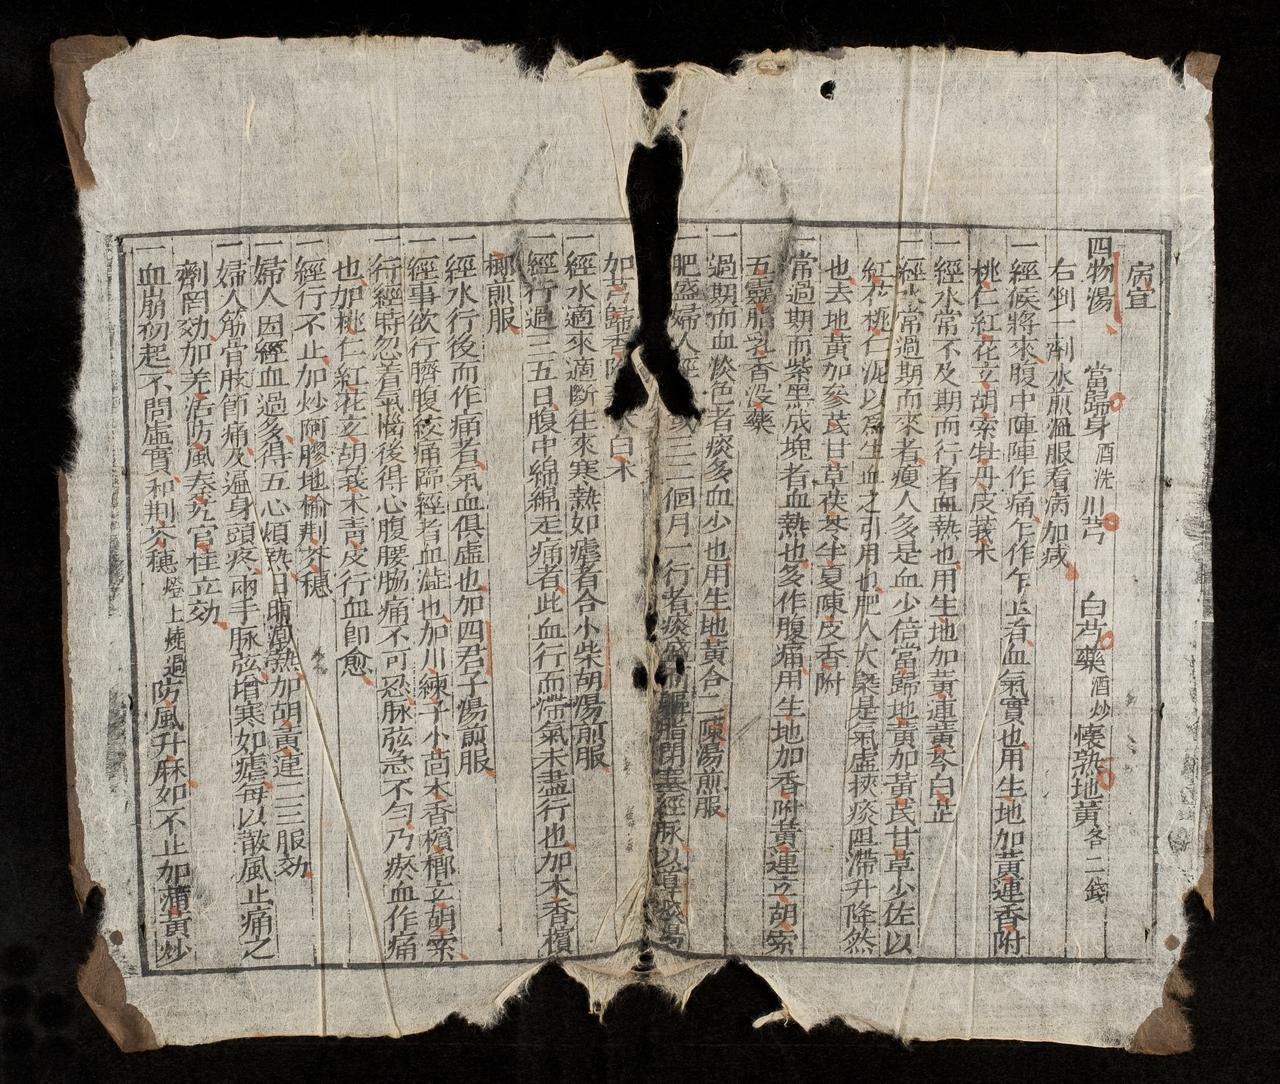 病宜
四物湯 當歸身酒洗 川芎 白芍藥酒炒 懷熟地黃各二錢
右剉一劑水煎溫服看病加減
一經候將來腹中陣陣作痛乍作乍止者血氣實也用生地加黃連香附
桃仁紅花玄胡索牡丹皮莪朮
一經水常不及期而行者血熱也用生地加黃連黃芩白芷
一經水常過期而來者瘦人多是血少倍當歸地黃加黃芪甘草少佐以
紅花桃仁泥以為生血之引用也肥人大槩是氣虛挾痰阻滯升降然
也去地黃加參芪甘草茯苓半夏陳皮香附
一常過期而紫黑成塊者血熱也多作腹痛用生地加香附黃連玄胡索
五靈脂乳香沒藥
一過期而血淡色者痰多血少也用生地黃合二陳湯煎服
一肥盛婦人經或二三個月一行者痰盛脂閉塞經脉以導痰湯
加芎歸香附白朮
一經水適來適斷往來寒熱如瘧者合小柴胡湯煎服
一經行過三五日腹中綿綿走痛者此血行而滯氣未盡行也加木香檳
榔煎服
一經水行後而作痛者氣血俱虛也加四君子湯煎服
一經事欲行臍腹絞痛臨經者血澁也加川練子小茴木香檳榔玄胡索
一行經時忽着氣惱後得心腹腰脇痛不可忍脉弦急不勻乃瘀血作痛
也加桃仁紅花玄胡莪朮青皮行血即愈
一經行不止加炒阿膠地榆荊芥穗
一婦人因經血過多得五心煩熱日晡潮熱加胡黃連二三服効
一婦人筋骨肢節痛及遍身頭疼兩手脉弦增寒如瘧每以散風止痛之
劑罔効加羌活防風秦艽官桂立効
一血崩初起不問虛實和荊芥穗燈上燒過防風升麻如不止加蒲黃炒